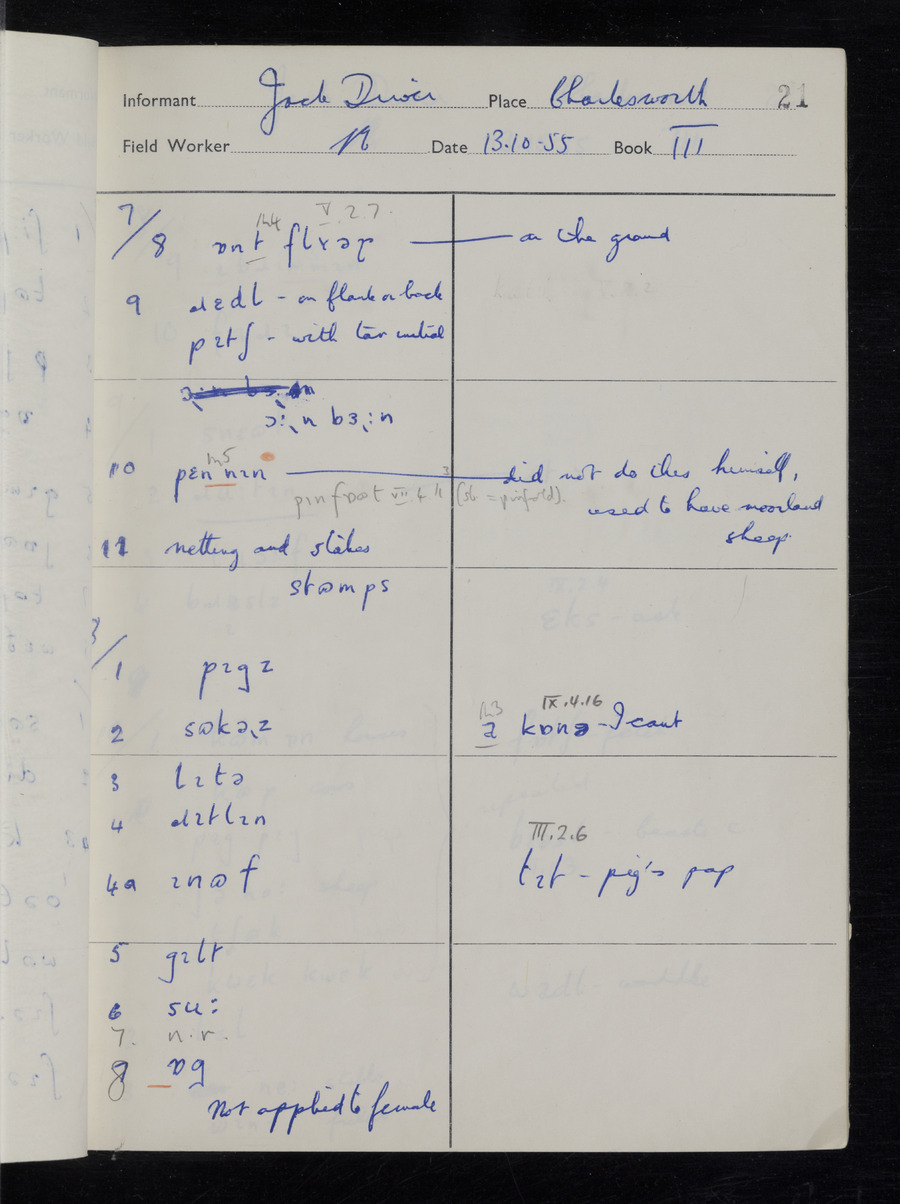 Informant Jack Driver Place Charlesworth 21
Field Worker Date 13.10.55 Book III
7/
V.2.7.
8 ɒn t flɤəɽ — on the ground
9 — on flank or back
pɪtʃ - with tar initial
ɔ:ɻn bɜɻ:n
10 pɛnnɪn — did not do this himself,
VII.4 (sb = pinfold). used to have moorland
sheep.
11 netting and stakes
stɷmps
3/
1 pɪgz
IX.4.16
2 sɷkəɻz kɒnə - I cant
3 lɪtə
4 lɪtlɪn
III.2.6
4a ɪnɷf tɪt - pig's pap
5 gɪlt
6 su:
7. n.r.
8 ɒg
Not applied to female